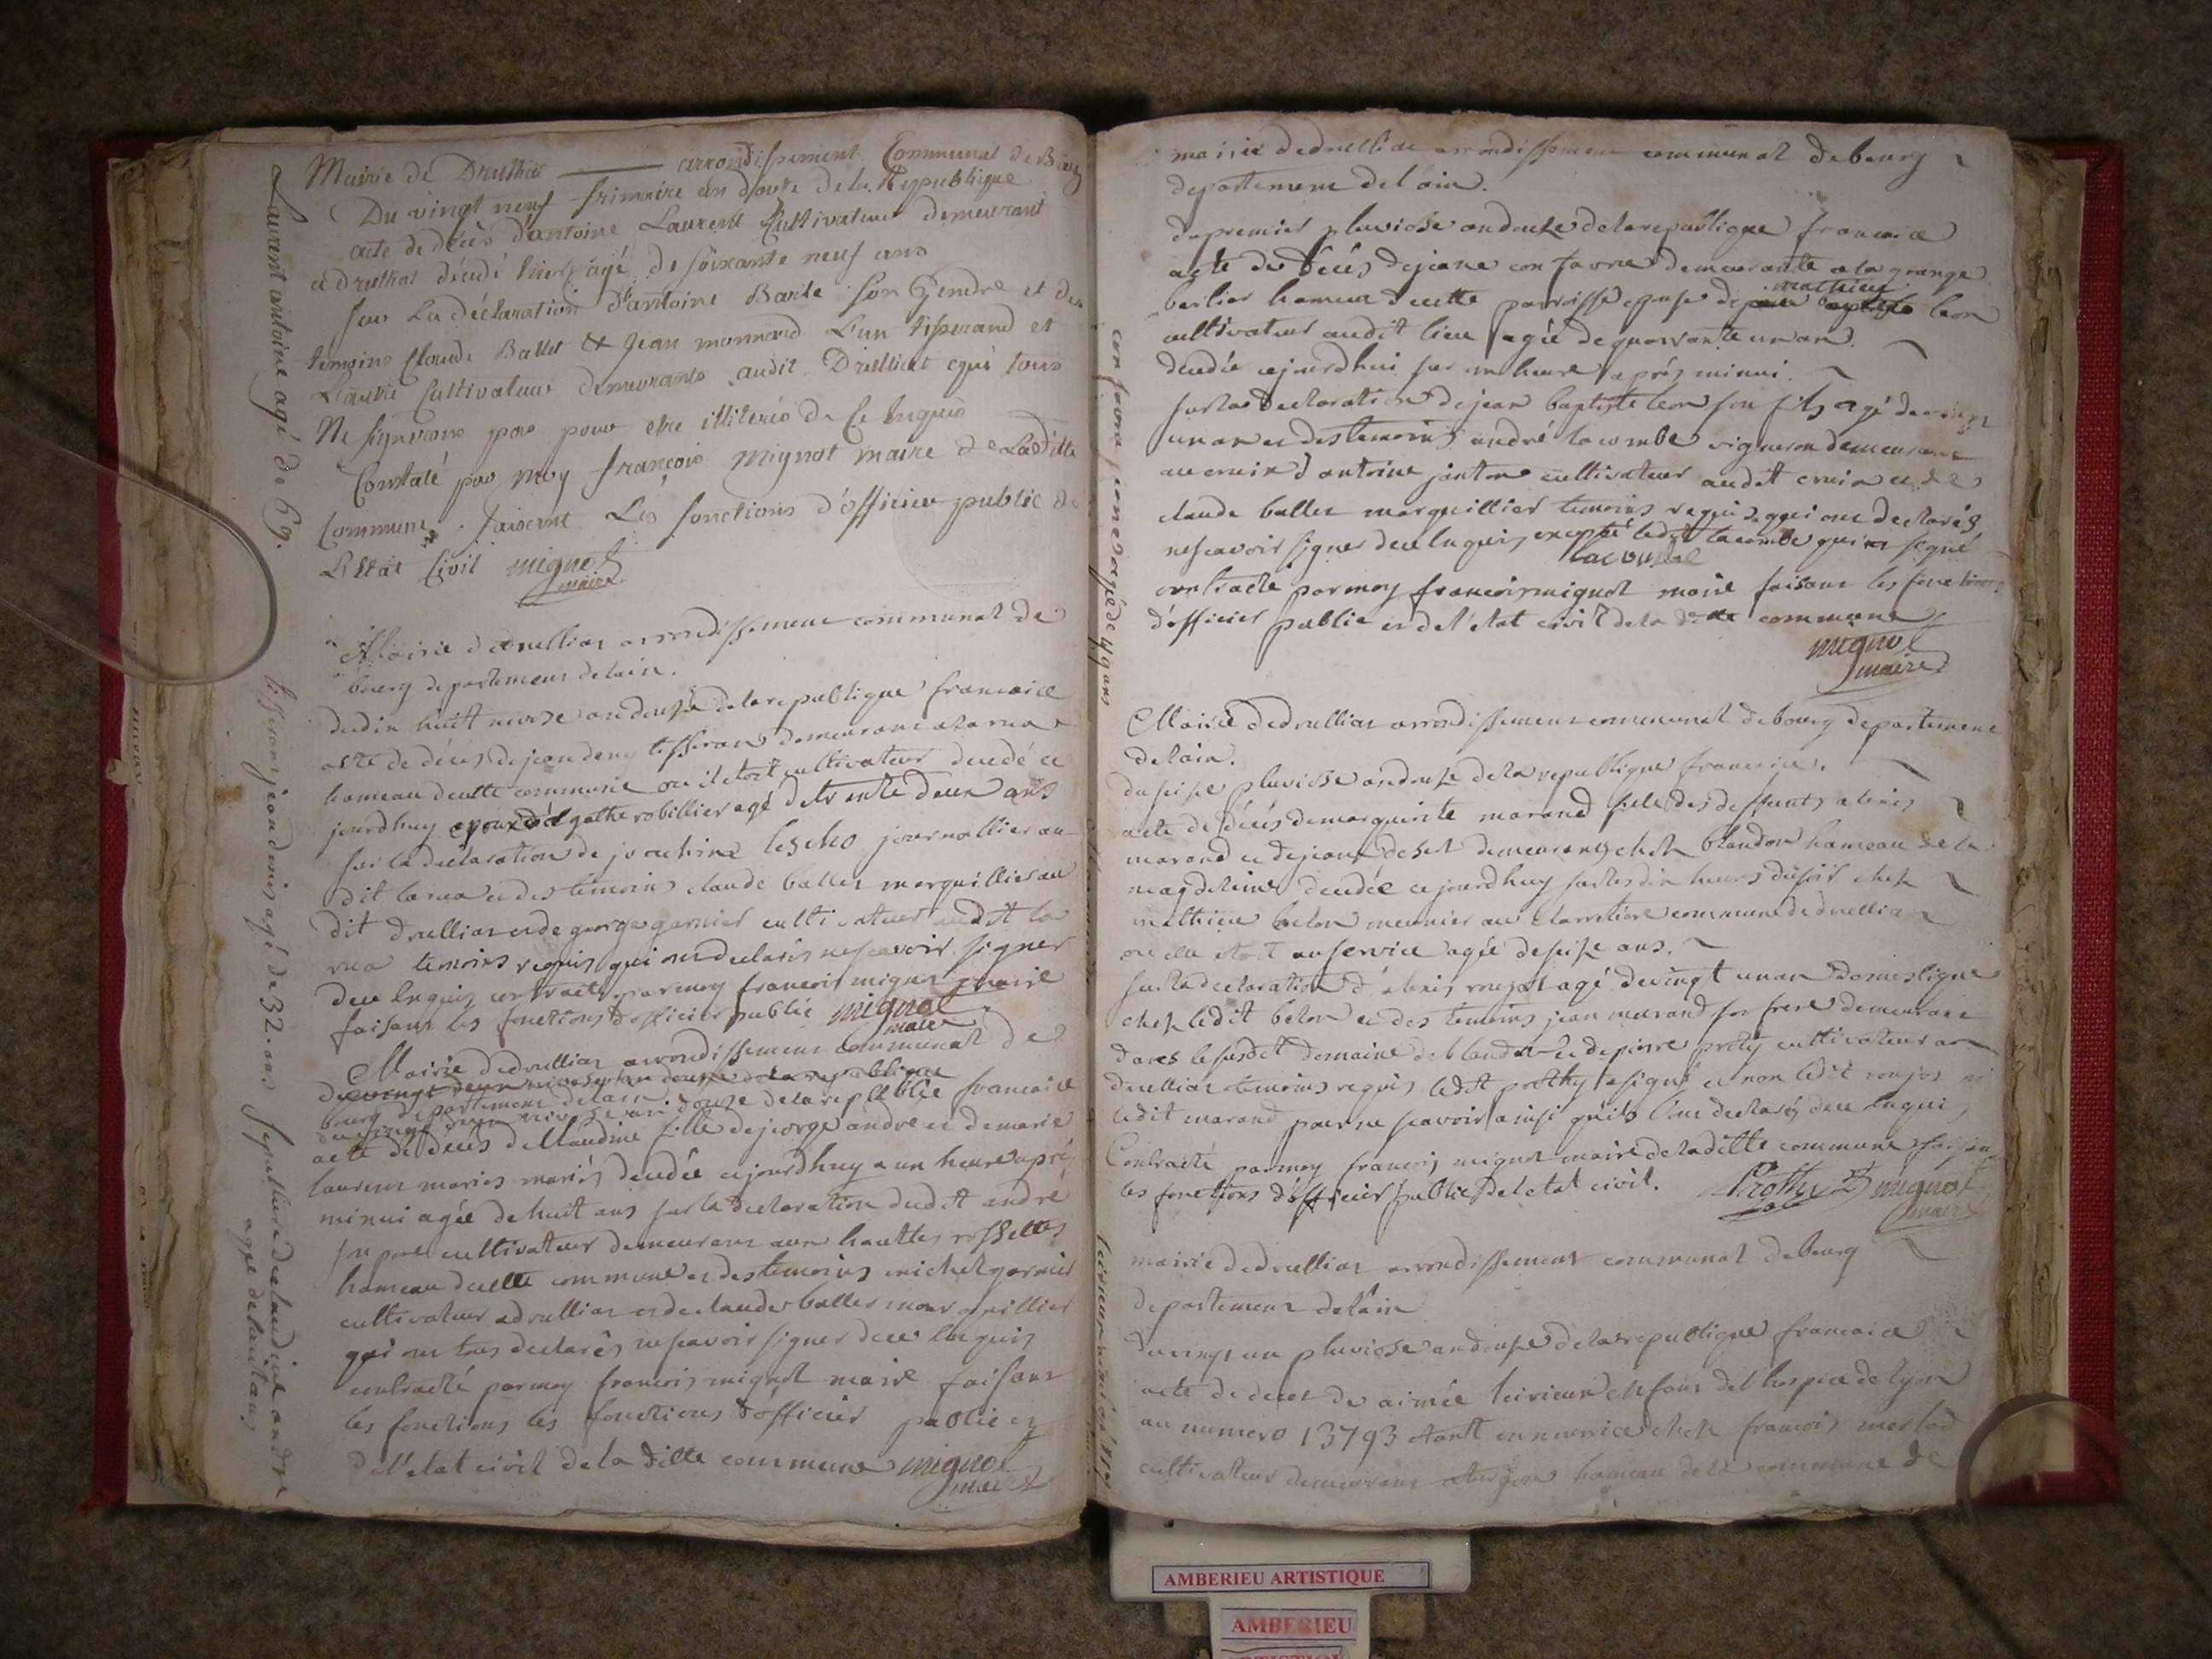 Mairie de Druilliat arrondissement Communal de Bourg
Du vingt neuf frimaire an douze de la Republique
acte de décès d'antoine Laurent Cultivateur demeurant
a druillat décédé hier agé de soixante neuf ans
sur La déclaration d'antoine Barde son Gendre et des
temoins Claude Ballet & Jean monnard L'un tisserand et
L'autre Cultivateur demeurants audit Druilliat qui tous
Ne signerons pas pour etre illiterés De Ce Enquis
Constaté par moy françois Mignot maire de Laditte
Commune faisant Les fonctions d'officier public de
L'Etat Civil mignot
maire
Laurent antoine agé de 69.
Mairie de druillias arrondissement communal de
bourg departement delain.
du dix huit nivose an douze de la republique francaise
acte de décès de jean denis tisseran demeurant a la rua
hameau de cette commune ou il etoit cultivateur decedé ce
jourdhuy epoux d'agathe robillier agé de trente deux ans
sur la declaration de joachim lescho journallier au
dit la rua et des temoins claude ballet marguillier au
dit druillias et de george garnier cultivateur audit la
rua temoins requis qui ont declarés ne scavoir signer
de ce enquis contracté par moy francois mignot maire
faisant les fonctions d'officier public mignot
maire
tisseran jean denis agé de 32. ans
Mairie de druillias arrondissement communal de
du vingt deux nivose an douze de la republique
bourg departement delain
du vingt deux nivose an douze de la republique francaise
acte de décès de Claudine fille de george andre et de marie
laurent mariés decedée cejourdhuy a un heure aprés
minui agée de huit ans sur la declaration dudit andré
son pere cultivateur demeurant aux hauttes rossettes
hameau de cette commune et des temoins michel garnier
cultivateur a druillias et de claude ballet marguillier
qui ont tous declarés ne scavoir signer de ce enquis
contracté par moy francois mignot maire faisant
les fonctions les fonctions d'officier public et
de l'etat civil de la ditte commune mignot
maire
sepulture de claudine andre
agée de huit ans
mairie de druillias arrondissement communal de bourg
departement de l'ain.
du premier pluviose an douze de la republique francaise
acte de décès de jeane confavre demeurante a la grange
berlier hameau de cette parroisse epouse de mathieu leon
cultivateur audit lieu agée de quarrante un an.
decedée cejourdhui sur un heure aprés minui.
sur la declaration de jean baptiste leon son fils agé de vingt
un an et des temoins andré lacombe vigneron demeurant
au cruix d'antoine janton cultivateur audit cruix et de
claude ballet marguillier temoins requis qui ont declarés
ne scavoir signer de ce enquis excepté ledit lacombe qui a signé
lacombe
contracté par moy francois mignot maire faisant les fonctions
d'officier public et de l'etat civil de la ditte commune
mignot
maire
Mairie de druillias arrondissement communal de bourg departement
delain.
du seise pluviose an douze de la republique francaise.
acte de décès de marguerite marand fille des deffunts alexis
marand et de jeane deset demeurants chez blandon hameau de la
magdeleine decedée cejourdhuy sur les dix heurs du soir chez
mathieu belon meunier au commune de druillias
ou elle etoit au service agée de seise ans.
sur la declaration d'alexis roujot agé de vingt un an domestique
chez ledit belon et des temoins jean marand son frere demeurant
dans le susdit domaine de blandon et de pierre prothy cultivateur a
druillias temoins requis ledit prothy a signé et non ledit roujos ni
ledit marand pour ne scavoir ainsi qu'ils l'ont declarés de ce enquis
Contracté par moy francois mignot maire de laditte commune faisant
les fonctions d'officier public de letat civil. Prothy mignot
maire
mairie de druillias arrondissement communal de bourg
departement de l'ain
du vingt un pluviose an douze de la republique francaise
acte de deces de aimée enfant de l'hospice de lyon
au numero 13793 etant en nourrice chez francois merlod
cultivateur demeurant a hameau de la commune de
AMBERIEU ARTISTIQUE
AMBERIEU
ARTISTIQUE